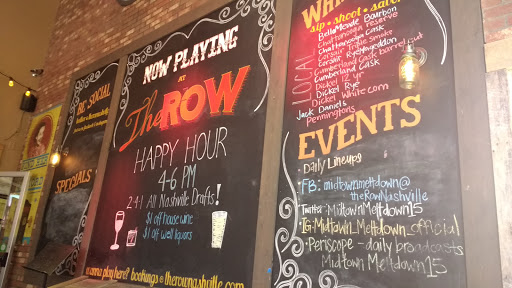 SOCIAL
SPECIALS
NOW PLAYING
at
The ROW
HAPPY HOUR
4-6 PM
2-4-1 All Nashville Drafts!
$1 off house wine
$1 off well liquors
wanna play here? bookings@therownashville.com
WHI
sip · shoot · savor
LOCAL
BelleMeade Bourbon
Chattanooga reserve
Chattanooga Cask
Corsair Triple Smoke
Corsair Ryemageddon
Cumberland Cask barrel cut
Cumberland Cask
Dickel 12 yr
Dickel Rye
Dickel White corn
Jack Daniels
Penningtons
EVENTS
· Daily Lineups
·FB: midtownmeltdown@
theRowNashville
·Twitter: MidtownMeltdown15
·IG: Midtown_Meltdown_official
·Periscope - daily broadcasts
Midtown Meltdown15